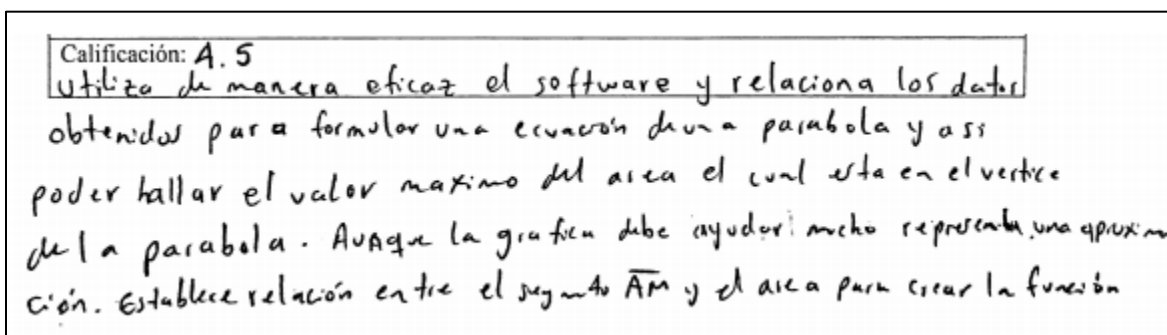 Calificación: A.5
utiliza de manera eficaz el software y relaciona los datos
obtenidos para formular una ecuación de una parabola y assi
poder hallar el valor maximo del area el cual esta en el vertice
de la parabola. Aunque la grafica debe ayudar mucho representa una aproxima
ción. Establece relación entre el segmento AM y el area para crear la función